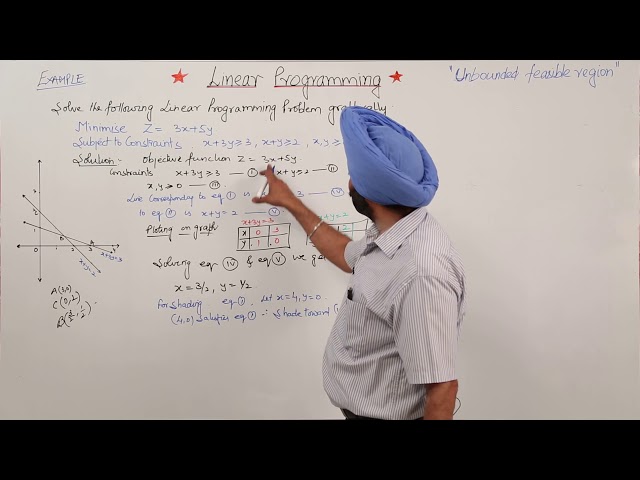 EXAMPLE
Linear Programming
"Unbounded feasible region"
Solve the following Linear Programming Problem graphically.
Minimise Z = 3x+5y
Subject to Constraints x+3y≥3, x+y≥2, x,y≥
Solution:- Objective function Z = 3x+5y
Constraints x+3y≥3 — I x+y≥2 — II
x,y≥0 — III
Line Corresponding to eq I is 3 — IV
to eq II is x+y=2 — V
Ploting on graph
x+3y=3
x 0 3
y 1 0
x+y=2
2
Solving eq IV & eq V we ge
x = 3/2, y = 1/2
For Shading eq I. Let x=4, y=0
(4,0) Satisfies eq I ∴ Shade toward
3
2
1
0 1 2 3 4
x+3y=3
x+y=2
A(3,0)
C(0,2)
B(3/2, 1/2)